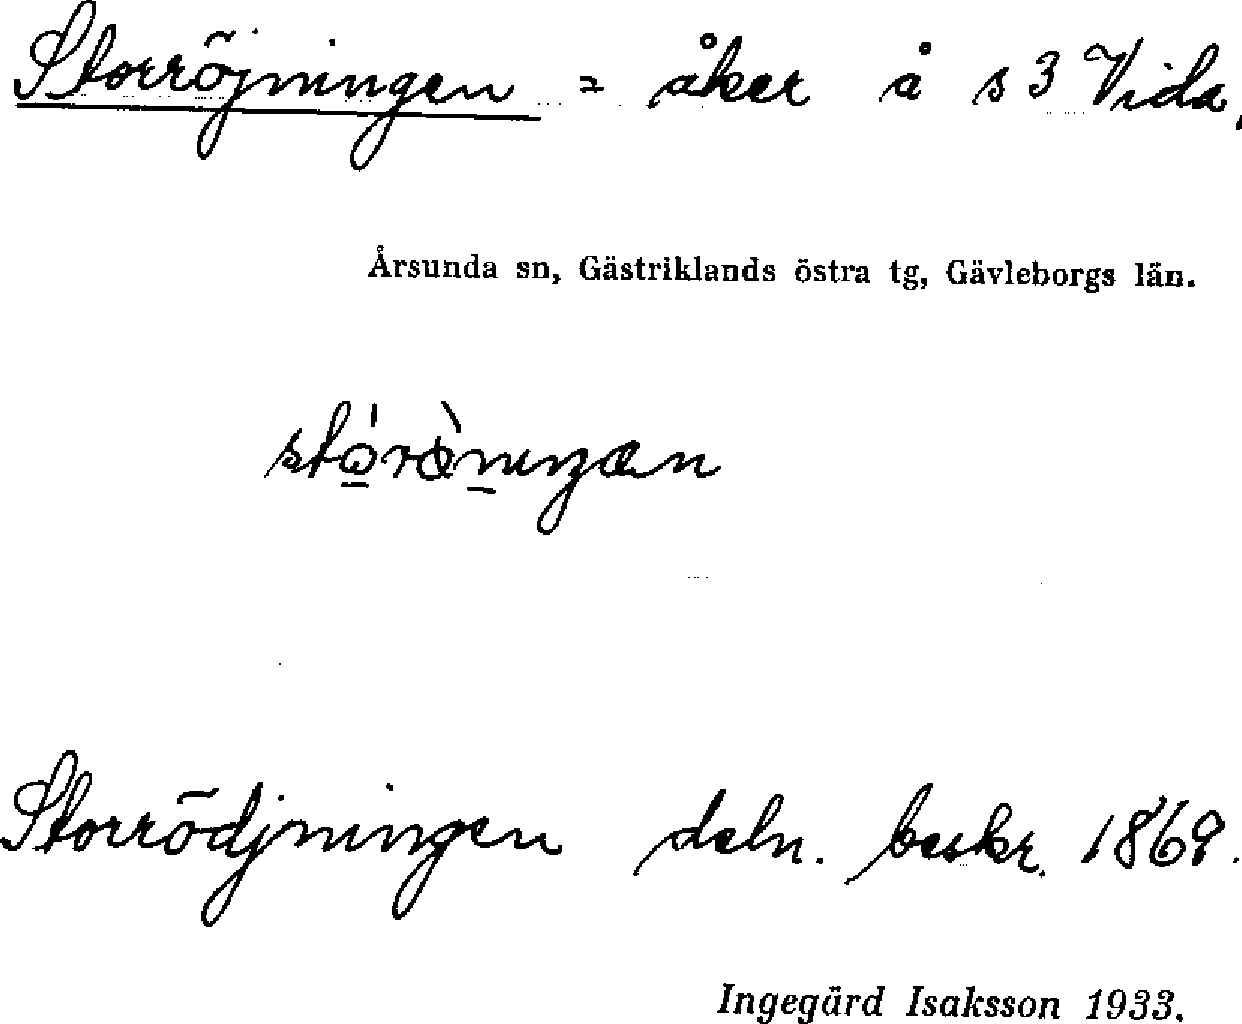 Storröjningen = åker å s 3 Vida,
Årsunda sn, Gästriklands östra tg, Gävleborgs län.
Storrödjningen deln. beskr. 1869.
Ingegärd Isaksson 1933.